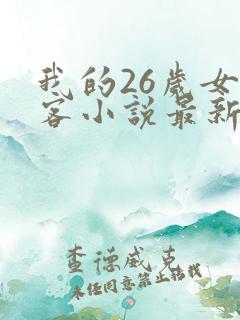 我的26歲女
客小說最新
查德威克
未经同意禁止转载